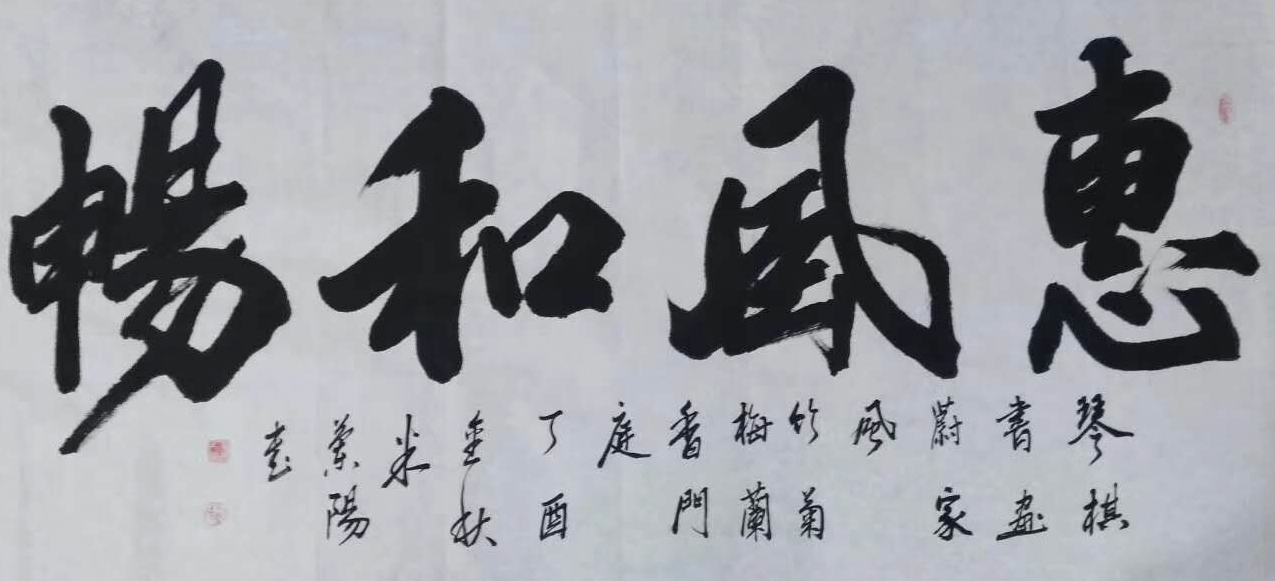 惠風和暢
琴棋
書畫
蔚家
風
竹菊
梅蘭
香門
庭
丁酉
金秋
米
陽